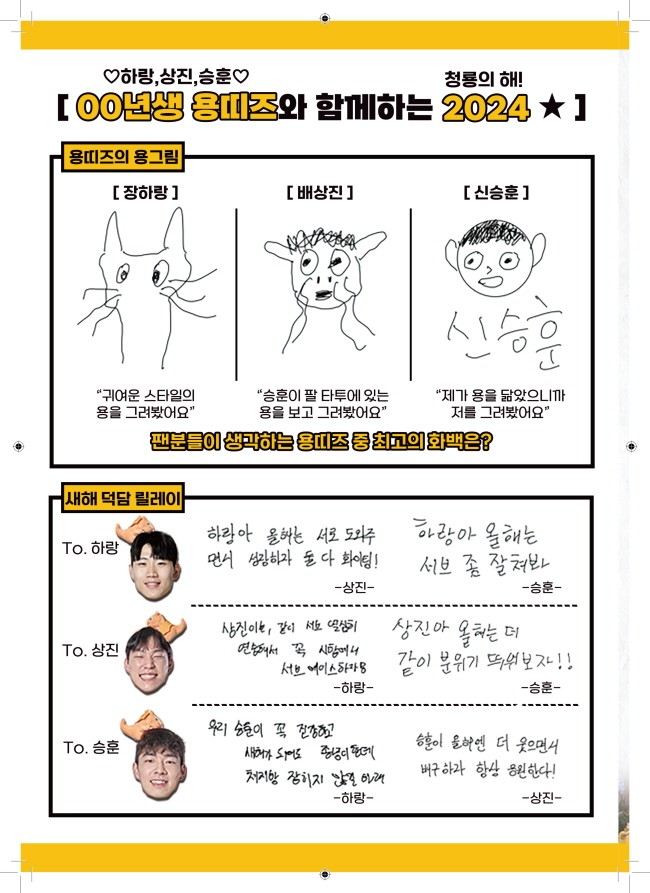 ♡하랑,상진,승훈♡
청룡의 해!
[ 00년생 용띠즈와 함께하는 2024 ★ ]
용띠즈의 용그림
[ 장하랑 ]
[ 배상진 ]
[ 신승훈 ]
신승훈
“귀여운 스타일의
용을 그려봤어요”
“승훈이 팔 타투에 있는
용을 보고 그려봤어요”
“제가 용을 닮았으니까
저를 그려봤어요”
팬분들이 생각하는 용띠즈 중 최고의 화백은?
새해 덕담 릴레이
To. 하랑
하랑아 올해는 서로 도와주
면서 성장하자 둘 다 화이팅!
-상진-
하랑아 올해는
서브 좀 잘쳐봐
-승훈-
To. 상진
상진이는, 같이 서브 열심히
연습해서 꼭 시합에서
서브 에이스하자
-하랑-
상진아 올해는 더
같이 분위기 띄워보자!!
-승훈-
To. 승훈
우리 승훈이 꼭
새해가 되어도
-하랑-
승훈이 올해엔 더 웃으면서
배구하자 항상 응원한다!
-상진-